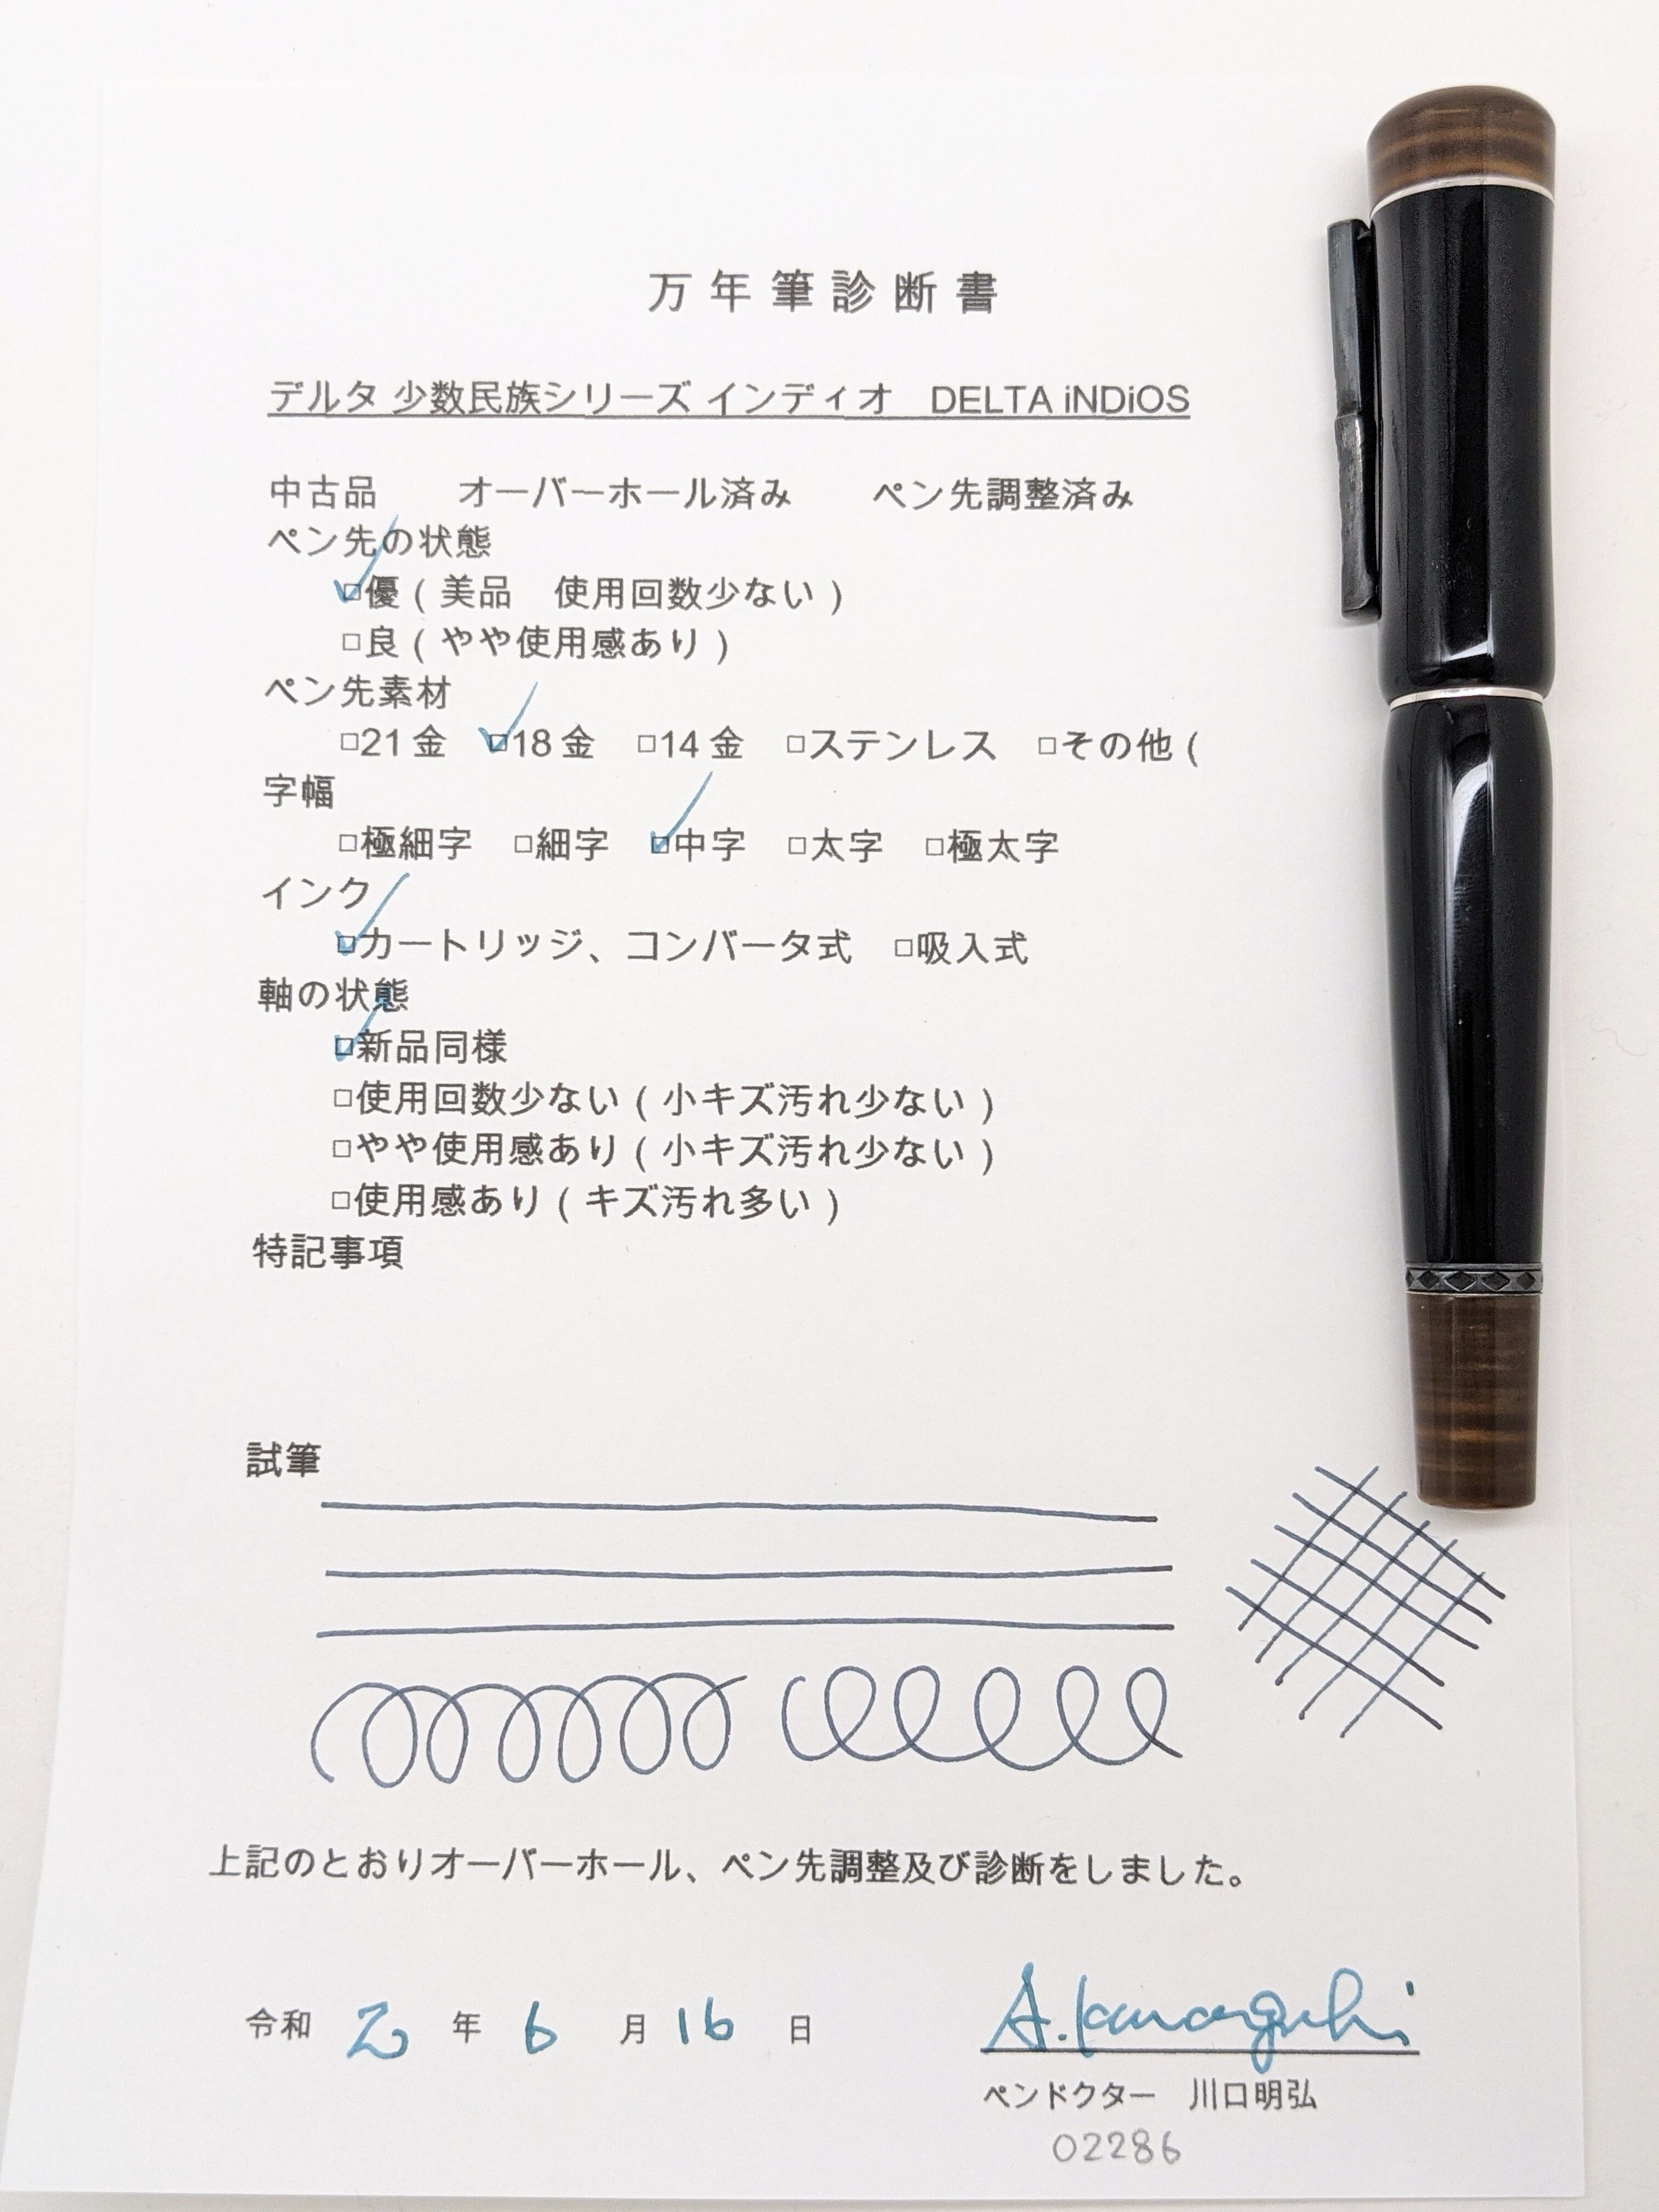 万年筆診断書
デルタ 少数民族シリーズ インディオ　DELTA iNDiOS
中古品　　オーバーホール済み　　ペン先調整済み
ペン先の状態
☑優（美品　使用回数少ない）
□良（やや使用感あり）
ペン先素材
□21金　☑18金　□14金　□ステンレス　□その他（
字幅
□極細字　□細字　☑中字　□太字　□極太字
インク
☑カートリッジ、コンバータ式　□吸入式
軸の状態
☑新品同様
□使用回数少ない（小キズ汚れ少ない）
□やや使用感あり（小キズ汚れ少ない）
□使用感あり（キズ汚れ多い）
特記事項
試筆
上記のとおりオーバーホール、ペン先調整及び診断をしました。
令和 元 年 6 月 16 日
A.Kawaguchi
ペンドクター　川口明弘
02286